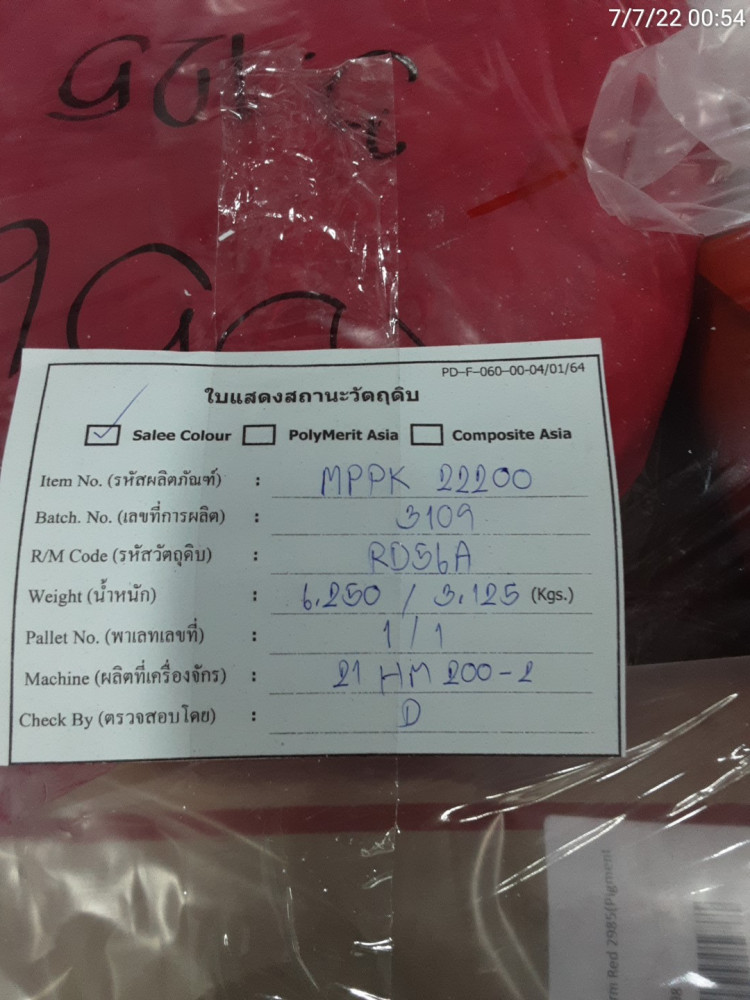 7/7/22 00:54
PD-F-060-00-04/01/64
ใบแสดงสถานะวัตถุดิบ
Salee Colour PolyMerit Asia Composite Asia
Item No. (รหัสผลิตภัณฑ์) : MPPK 22200
Batch. No. (เลขที่การผลิต) : 3109
R/M Code (รหัสวัตถุดิบ) : RD56A
Weight (น้ำหนัก) : 6.250 / 3.125 (Kgs.)
Pallet No. (พาเลทเลขที่) : 1 / 1
Machine (ผลิตที่เครื่องจักร) : 21 HM 200-2
Check By (ตรวจสอบโดย) : D
Red 2985(Pigment